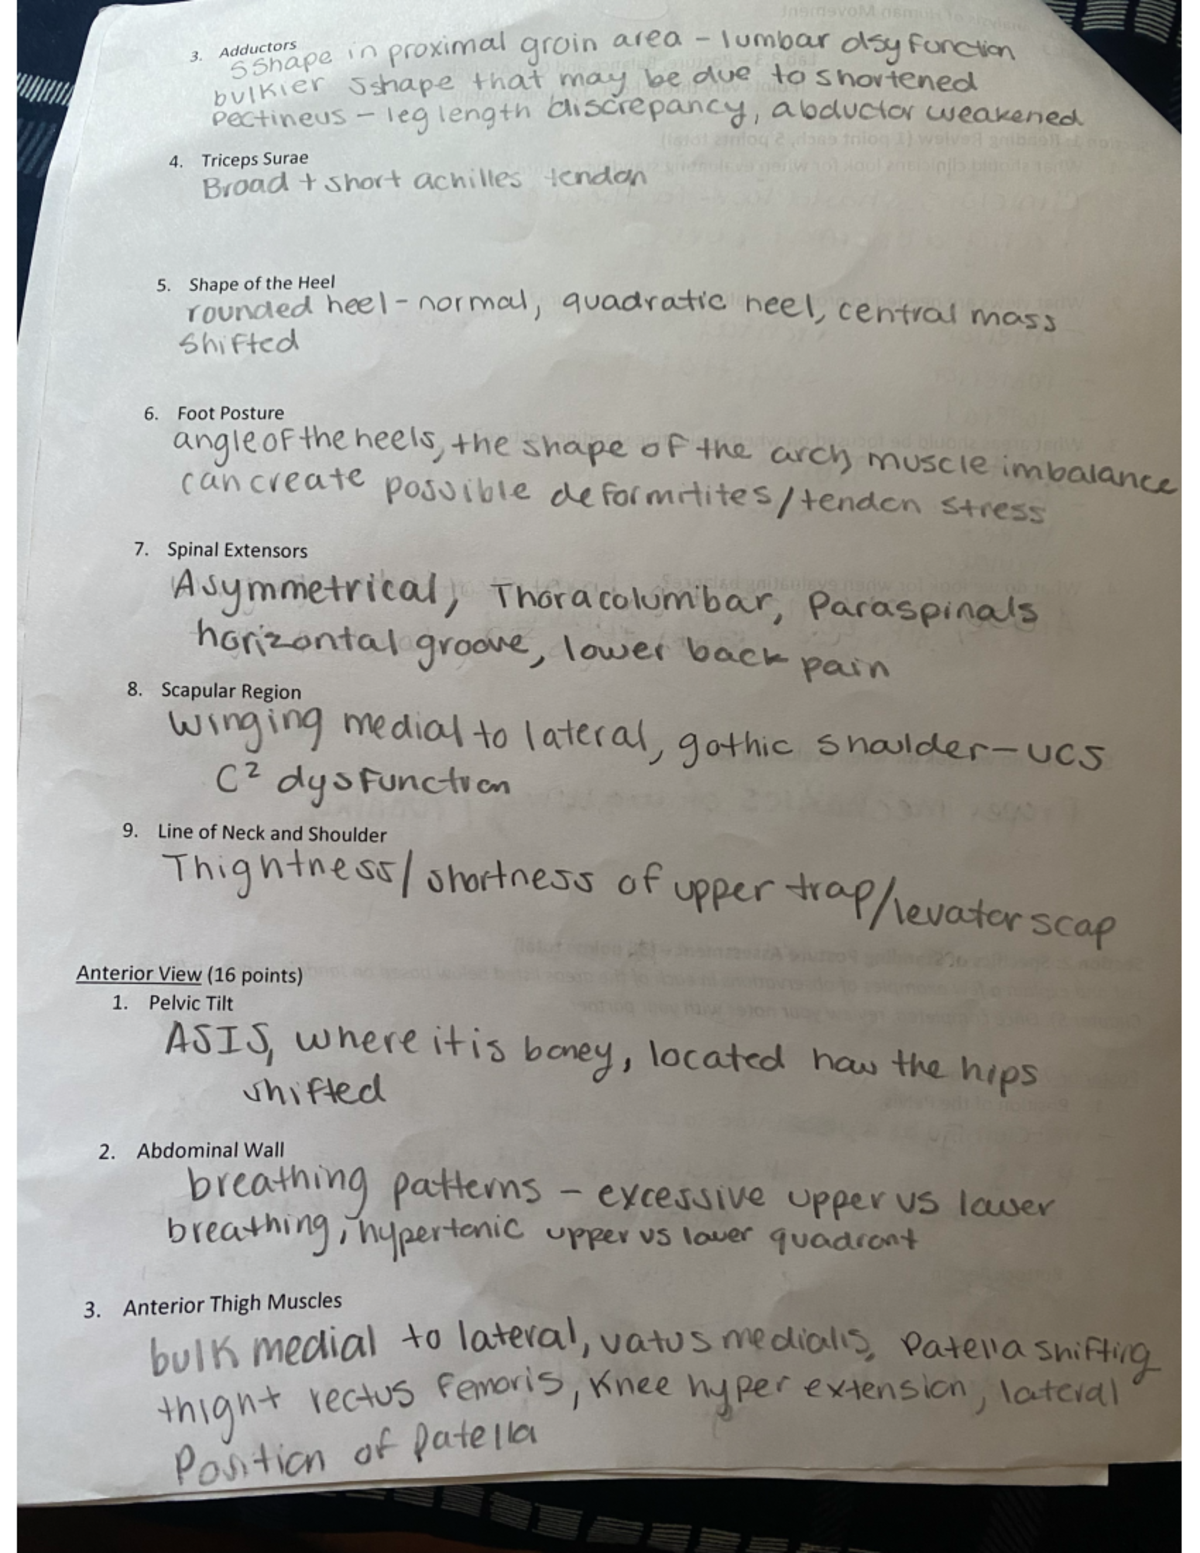 3. Adductors
sshape in proximal groin area - lumbar dsyfunction
bulkier sshape that may be due to shortened
pectineus - leg length discrepancy, abductor weakened
4. Triceps Surae
Broad + short achilles tendon
5. Shape of the Heel
rounded heel - normal, quadratic heel, central mass
shifted
6. Foot Posture
angle of the heels, the shape of the arch, muscle imbalance
can create possible deformitites/tendon stress
7. Spinal Extensors
Asymmetrical, Thoracolumbar, Paraspinals
horizontal groove, lower back pain
8. Scapular Region
winging medial to lateral, gothic shoulder - UCS
C² dysfunction
9. Line of Neck and Shoulder
Thightness/shortness of upper trap/levator scap
Anterior View (16 points)
1. Pelvic Tilt
ASIS, where it is boney, located how the hips
shifted
2. Abdominal Wall
breathing patterns - excessive upper vs lower
breathing, hypertonic upper vs lower quadrant
3. Anterior Thigh Muscles
bulk medial to lateral, vatus medialis, Patella shifting
thight rectus femoris, knee hyper extension, lateral
Position of patella